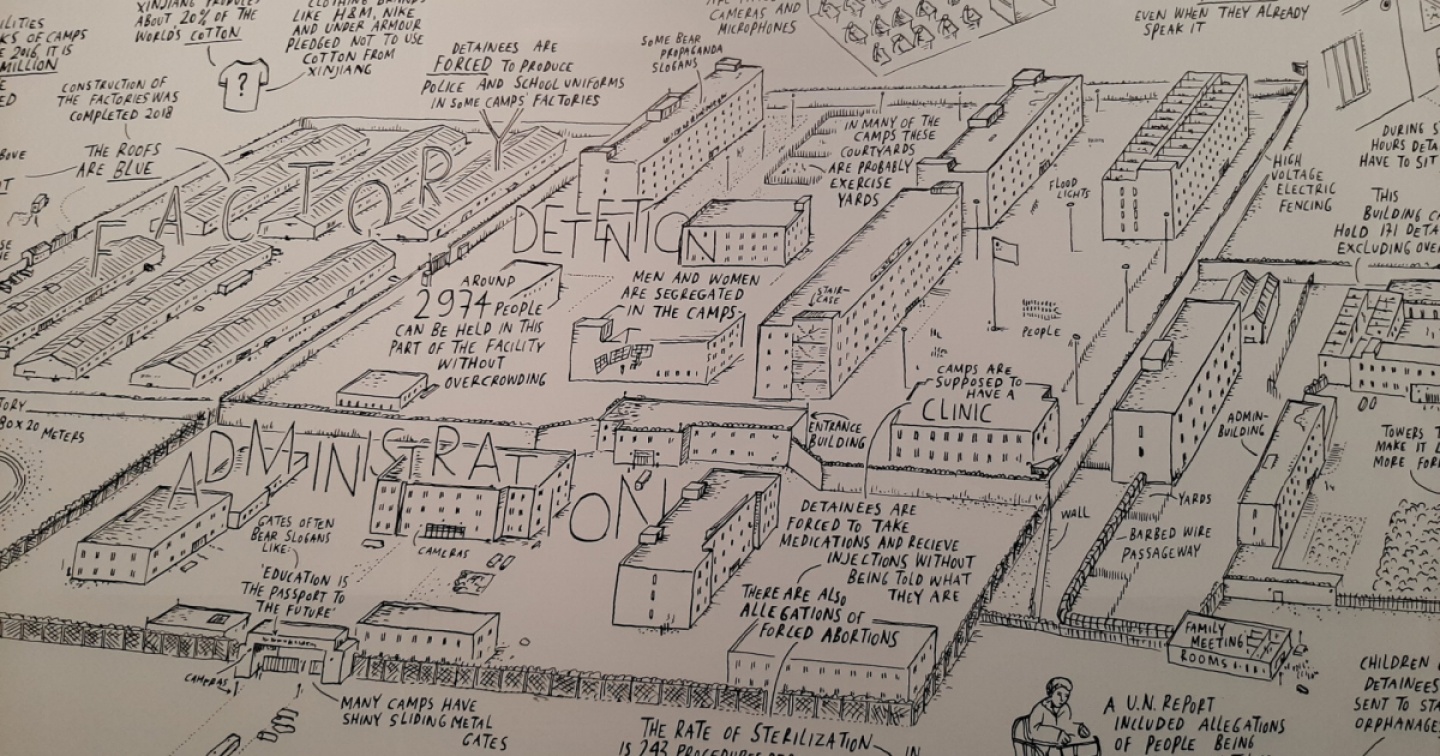 ILITIES
KS OF CAMPS
2016, IT IS
MILLION
XINJIANG PRODUCES
ABOUT 20% OF THE
WORLD'S COTTON
CLOTHING BRANDS
LIKE H&M, NIKE
AND UNDER ARMOUR
PLEDGED NOT TO USE
COTTON FROM
XINJIANG
?
DETAINEES ARE
FORCED TO PRODUCE
POLICE AND SCHOOL UNIFORMS
IN SOME CAMPS' FACTORIES
SOME BEAR
PROPAGANDA
SLOGANS
CAMERAS AND
MICROPHONES
EVEN WHEN THEY ALREADY
SPEAK IT
CONSTRUCTION OF
THE FACTORIES WAS
COMPLETED 2018
THE ROOFS
ARE BLUE
FACTORY
IN MANY OF THE
CAMPS THESE
COURTYARDS
ARE PROBABLY
EXERCISE
YARDS
FLOOD
LIGHTS
HIGH
VOLTAGE
ELECTRIC
FENCING
DURING S
HOURS DETA
HAVE TO SIT
THIS
BUILDING CA
HOLD 171 DETA
EXCLUDING OVER
DETENTION
AROUND
2974 PEOPLE
CAN BE HELD IN THIS
PART OF THE FACILITY
WITHOUT
OVERCROWDING
MEN AND WOMEN
ARE SEGREGATED
IN THE CAMPS
STAIR-
CASE
PEOPLE
CAMPS ARE
SUPPOSED TO
HAVE A
CLINIC
ENTRANCE
BUILDING
ADMIN-
BUILDING
TORY
80 X 20 METERS
ADMINISTRATION
TOWERS T
MAKE IT L
MORE FOR
GATES OFTEN
BEAR SLOGANS
LIKE:
'EDUCATION IS
THE PASSPORT TO
THE FUTURE'
CAMERAS
DETAINEES ARE
FORCED TO TAKE
MEDICATIONS AND RECIEVE
INJECTIONS WITHOUT
BEING TOLD WHAT
THEY ARE
THERE ARE ALSO
ALLEGATIONS OF
FORCED ABORTIONS
WALL
YARDS
BARBED WIRE
PASSAGEWAY
FAMILY
MEETING
ROOMS
CAMERAS
MANY CAMPS HAVE
SHINY SLIDING METAL
GATES
THE RATE OF STERILIZATION
IN
IS 243 PROCEDURES PER
A U.N. REPORT
INCLUDED ALLEGATIONS
OF PEOPLE BEING
CHILDREN
DETAINEES
SENT TO STA
ORPHANAGE